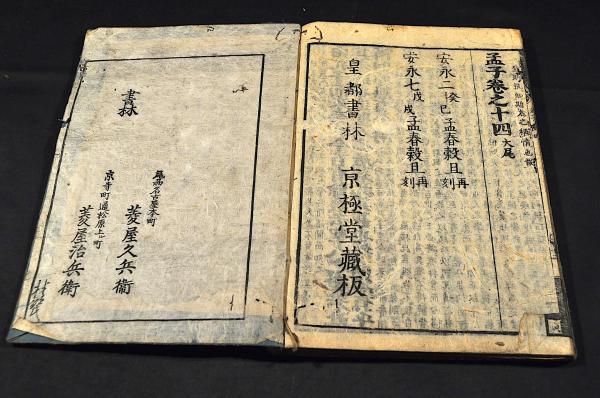 孟子巻之十四大尾
安永二癸巳孟春穀旦再刻
安永七戊戌孟春穀旦再刻
皇都書林 京極堂藏板
書林
尾州名古屋本町
菱屋久兵衛
京寺町通松原上町
菱屋治兵衛